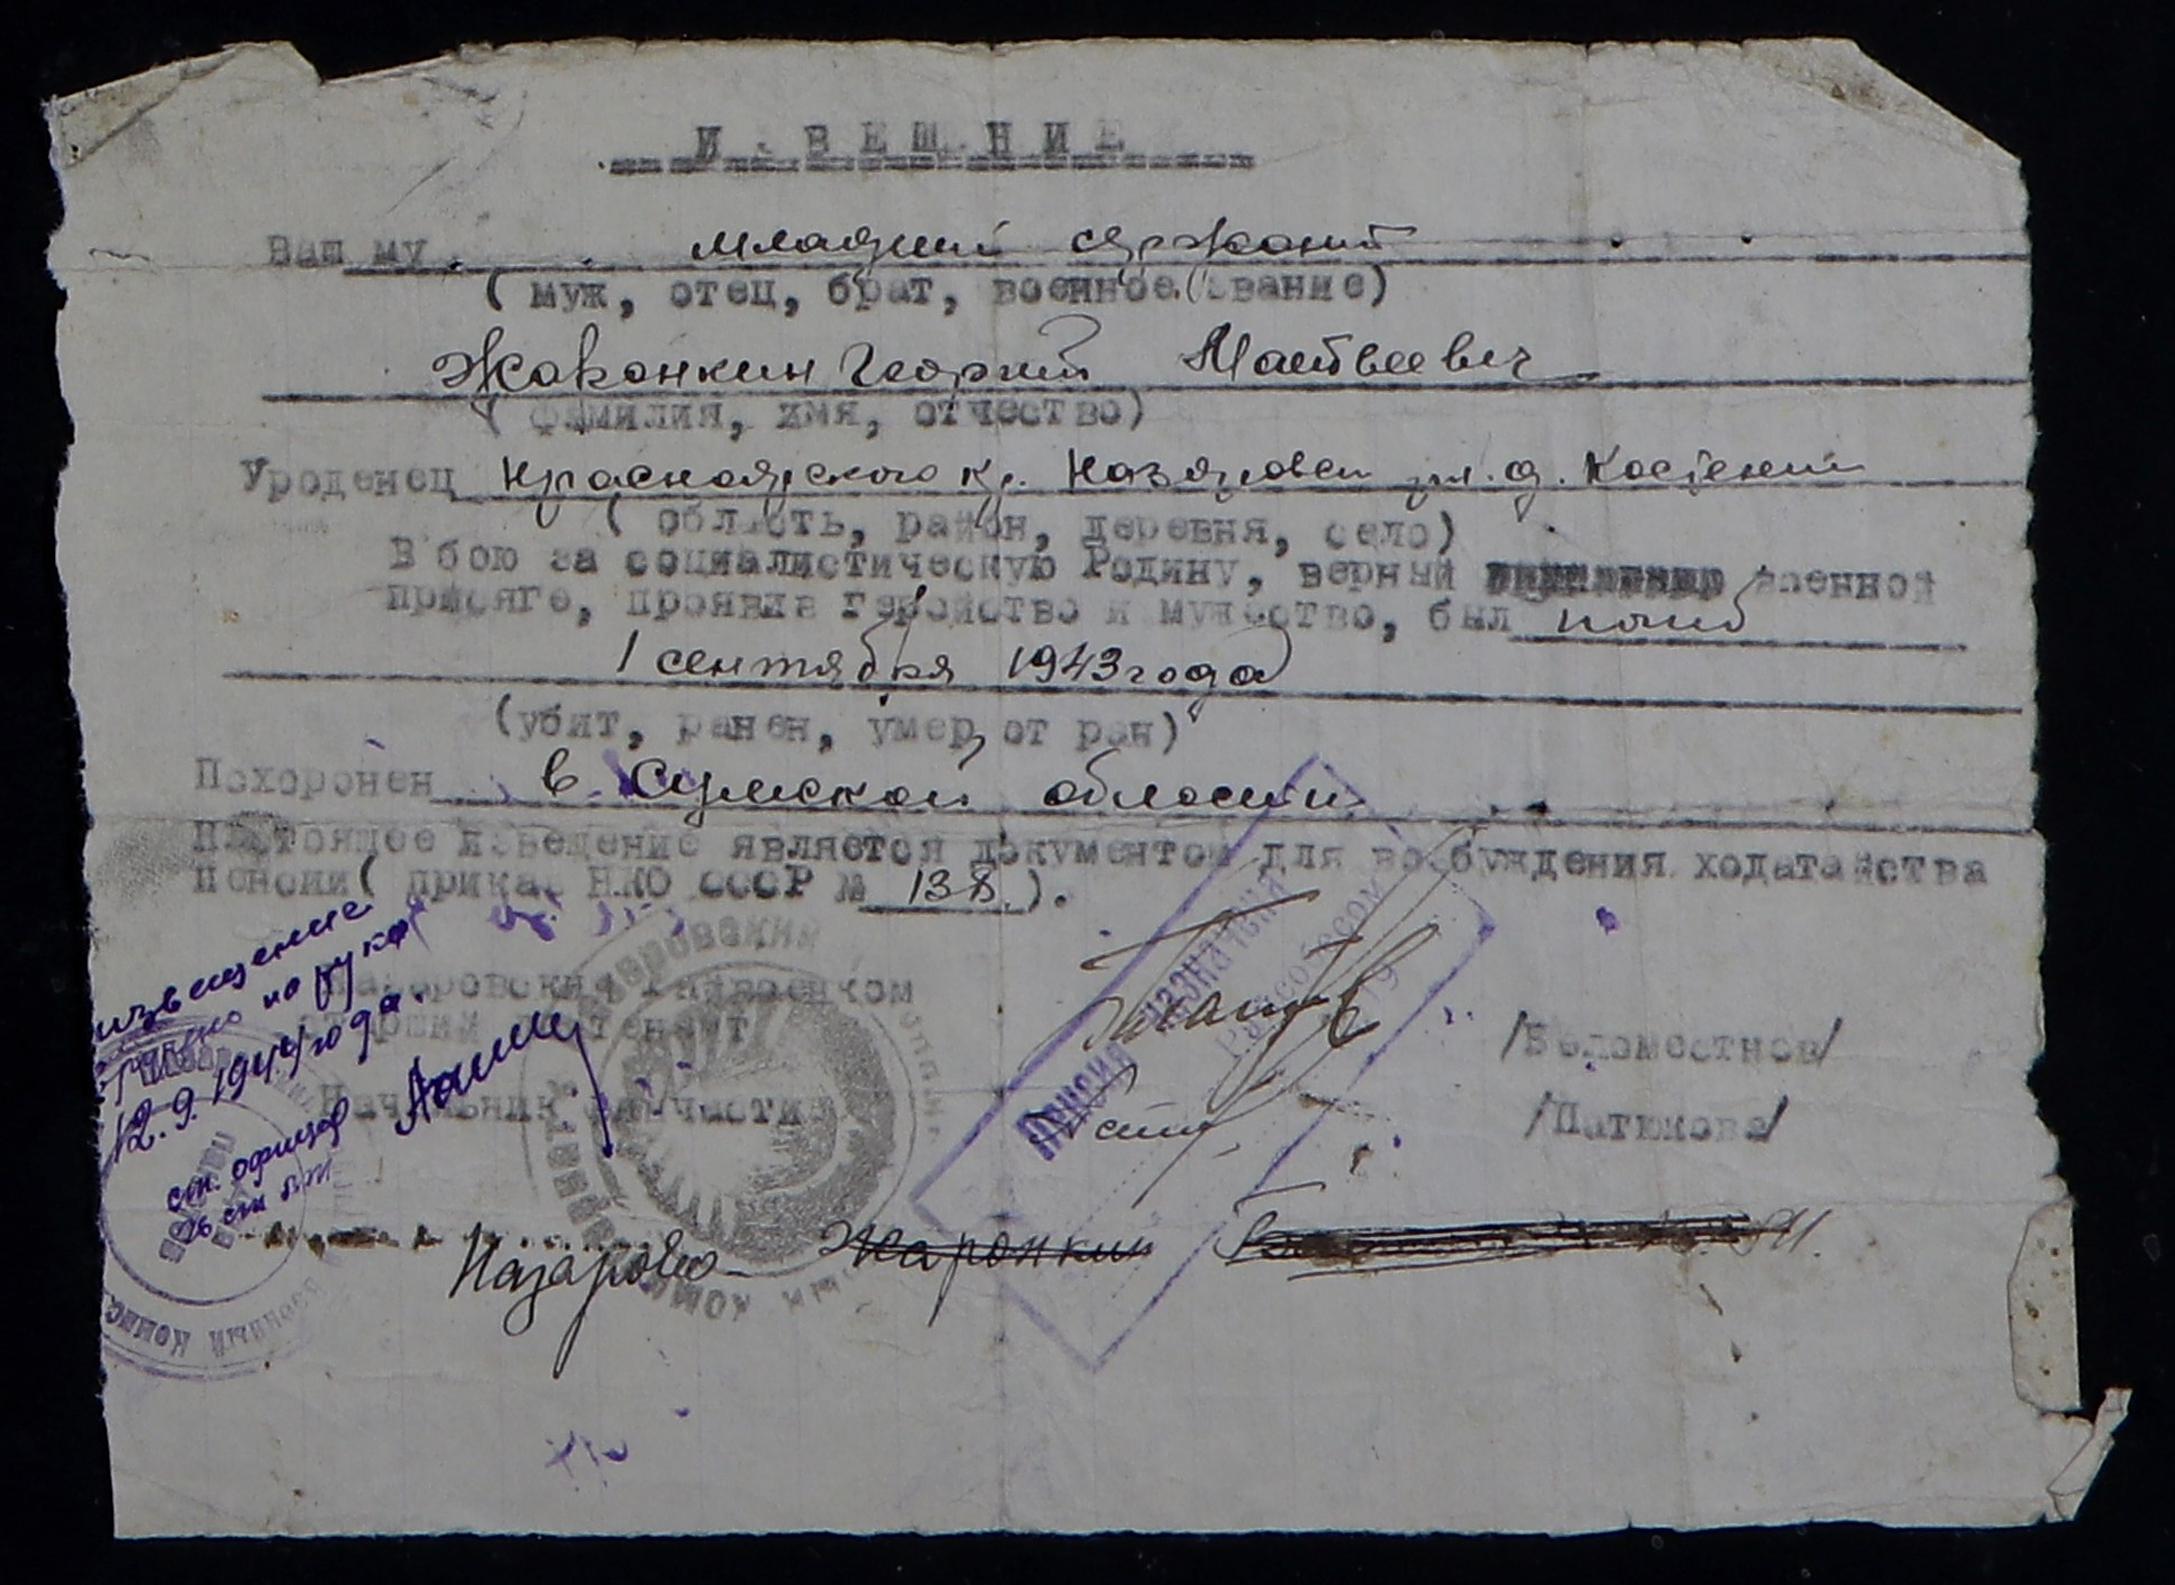 ИЗВЕЩЕНИЕ
Ваш му младший сержант
( муж, отец, брат, военное звание)
Жаронкин Георгий Матвеевич
( фамилия, имя, отчество)
Уроденец Красноярского кр. Назаровск д.
( область, район, деревня, село)
В бою за социалистическую Родину, верный военной
присяге, проявив геройство и мужество, был погиб
1 сентября 1943 года
(убит, ранен, умер от ран)
Похоронен в Сумской области
Настоящее извещение является документом для возбуждения ходатайства
пенсии( приказ НКО СССР № 138 ).
извещение
на руках
12.9.1944 года.
ст. офицер
Назаровский Райвоенком
старший лейтенант /Беломестнов/
Начальник части /Патюков/
Пенсия назначена
Райсобесом
19
Назарово Жаронкин